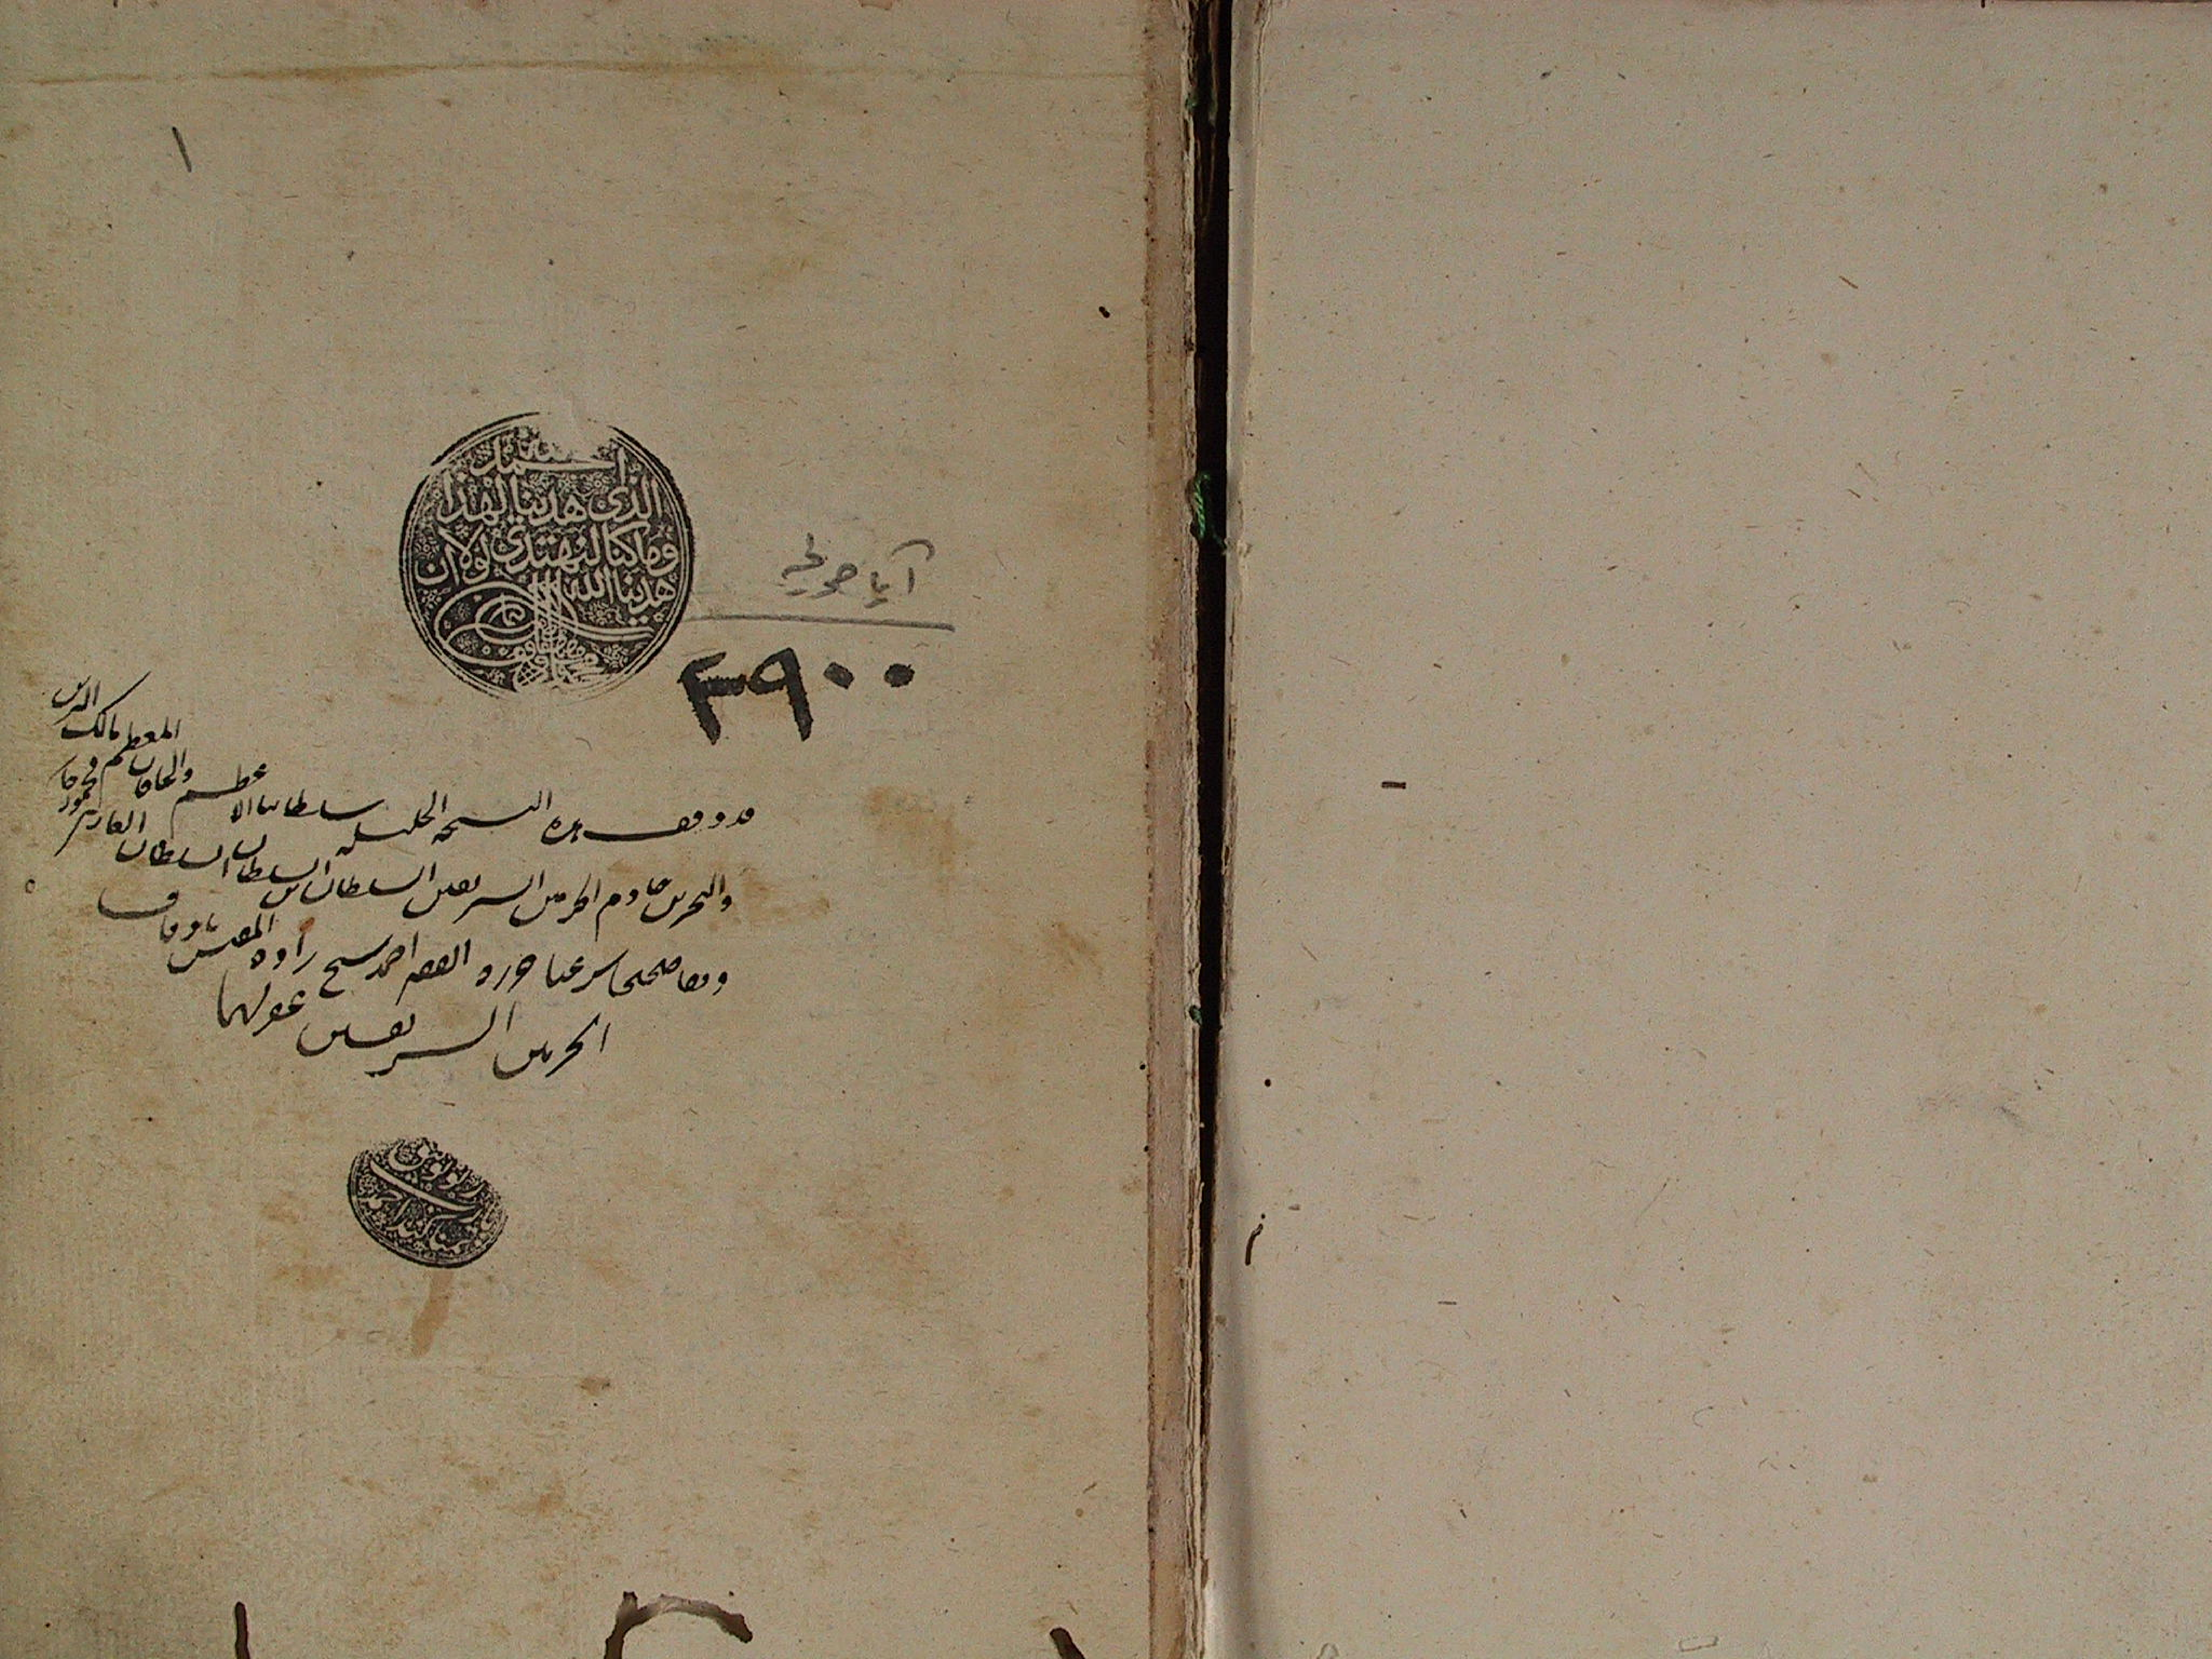 ١
الحمد لله
الذى هدينا لهذا
وما كنا لنهتدى لولا ان
هدينا الله
آيا صوفيه
٣٩٠٠
قد وقف هذه النسخة الجليله سلطاننا الاعظم والخاقان المعظم مالك البرين
والبحرين خادم الحرمين الشريفين السلطان بن السلطان السلطان الغازى محمود خان
وقفا صحيحا شرعيا حرره الفقير احمد شيخ زاده المفتش باوقاف
الحرمين الشريفين غفر لهما